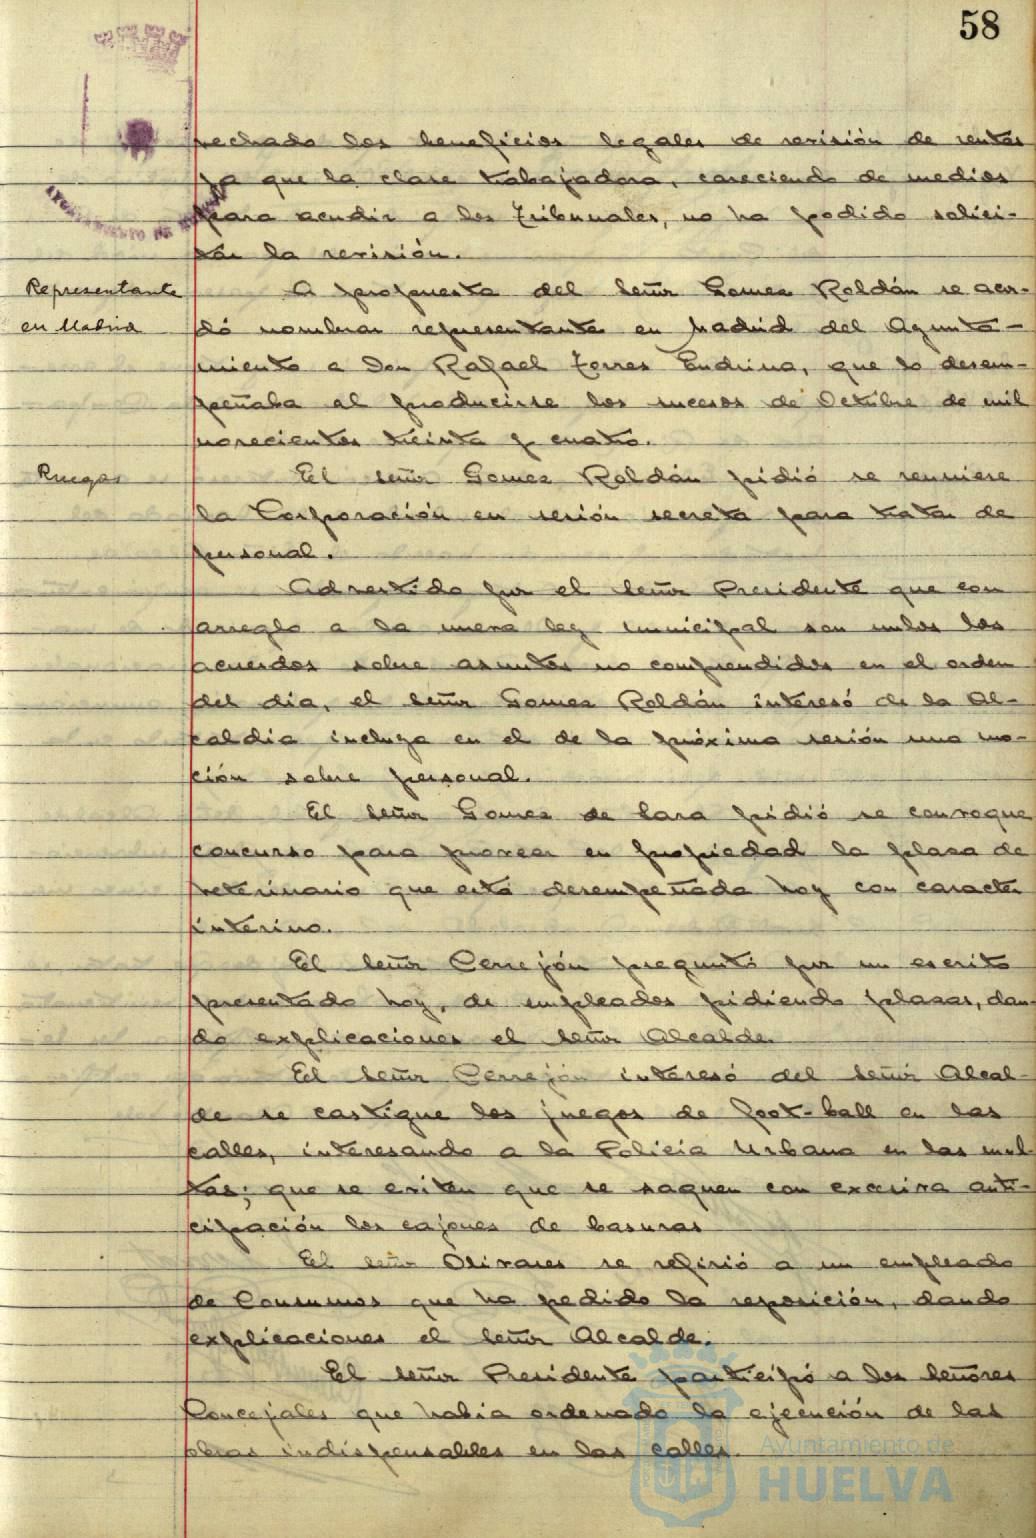 58
AYUNTAMIENTO DE HUELVA
vechado los beneficios legales de revisión de rentas
ya que la clase trabajadora, careciendo de medios
para acudir a los Tribunales, no ha podido solici-
tar la revisión.
Representante
en Madrid
A propuesta del Señor Gomez Roldán se acor-
dó nombrar representante en Madrid del Ayunta-
miento a Don Rafael Torres Endrina, que lo desem-
peñaba al producirse los sucesos de Octubre de mil
novecientos treinta y cuatro.
Ruegos
El señor Gomez Roldán pidió se reuniese
la Corporación en sesión secreta para tratar de
personal.
Advertido por el Señor Presidente que con
arreglo a la nueva ley municipal son nulos los
acuerdos sobre asuntos no comprendidos en el orden
del dia, el Señor Gomez Roldán interesó de la Al-
caldia incluya en el de la próxima sesión una mo-
ción sobre personal.
El Señor Gomez de Lara pidió se convoque
concurso para proveer en propiedad la plaza de
veterinario que está desempeñada hoy con caracter
interino.
El Señor Cerrejón preguntó por un escrito
presentado hoy, de empleados pidiendo plazas, dan-
do explicaciones el Señor Alcalde.
El Señor Cerrejón interesó del Señor Alcal-
de se castigue los juegos de foot-ball en las
calles, interesando a la Policia Urbana en las mul-
tas; que se eviten que se saquen con excesiva anti-
cipación los cajones de basuras
El Señor Olivares se refirió a un empleado
de Consumos que ha pedido la reposición, dando
explicaciones el Señor Alcalde.
El Señor Presidente participó a los Señores
Concejales que habia ordenado la ejecución de las
obras indispensables en las calles.
Ayuntamiento de
HUELVA